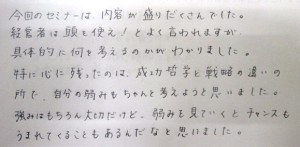 今回のセミナーは、内容が盛りだくさんでした。
経営者は頭を使え！とよく言われますが、
具体的に何を考えるのかがわかりました。
特に心に残ったのは、成功哲学と戦略の違いの
所で、自分の弱みもちゃんと考えようと思いました。
強みはもちろん大切だけど、弱みを見ていくとチャンスも
うまれてくることもあるんだなと思いました。